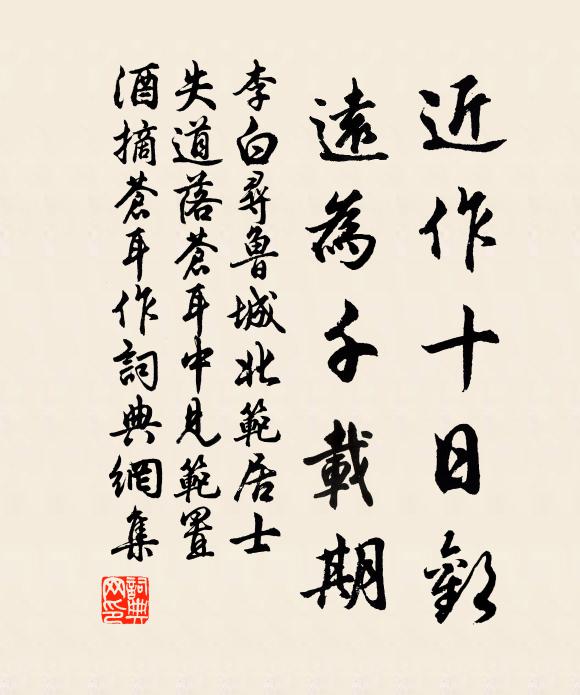 近作十日歡
遠為千載期
李白尋魯城北範居士
失道落蒼耳中見範置
酒摘蒼耳作詞典網集
詞典網印